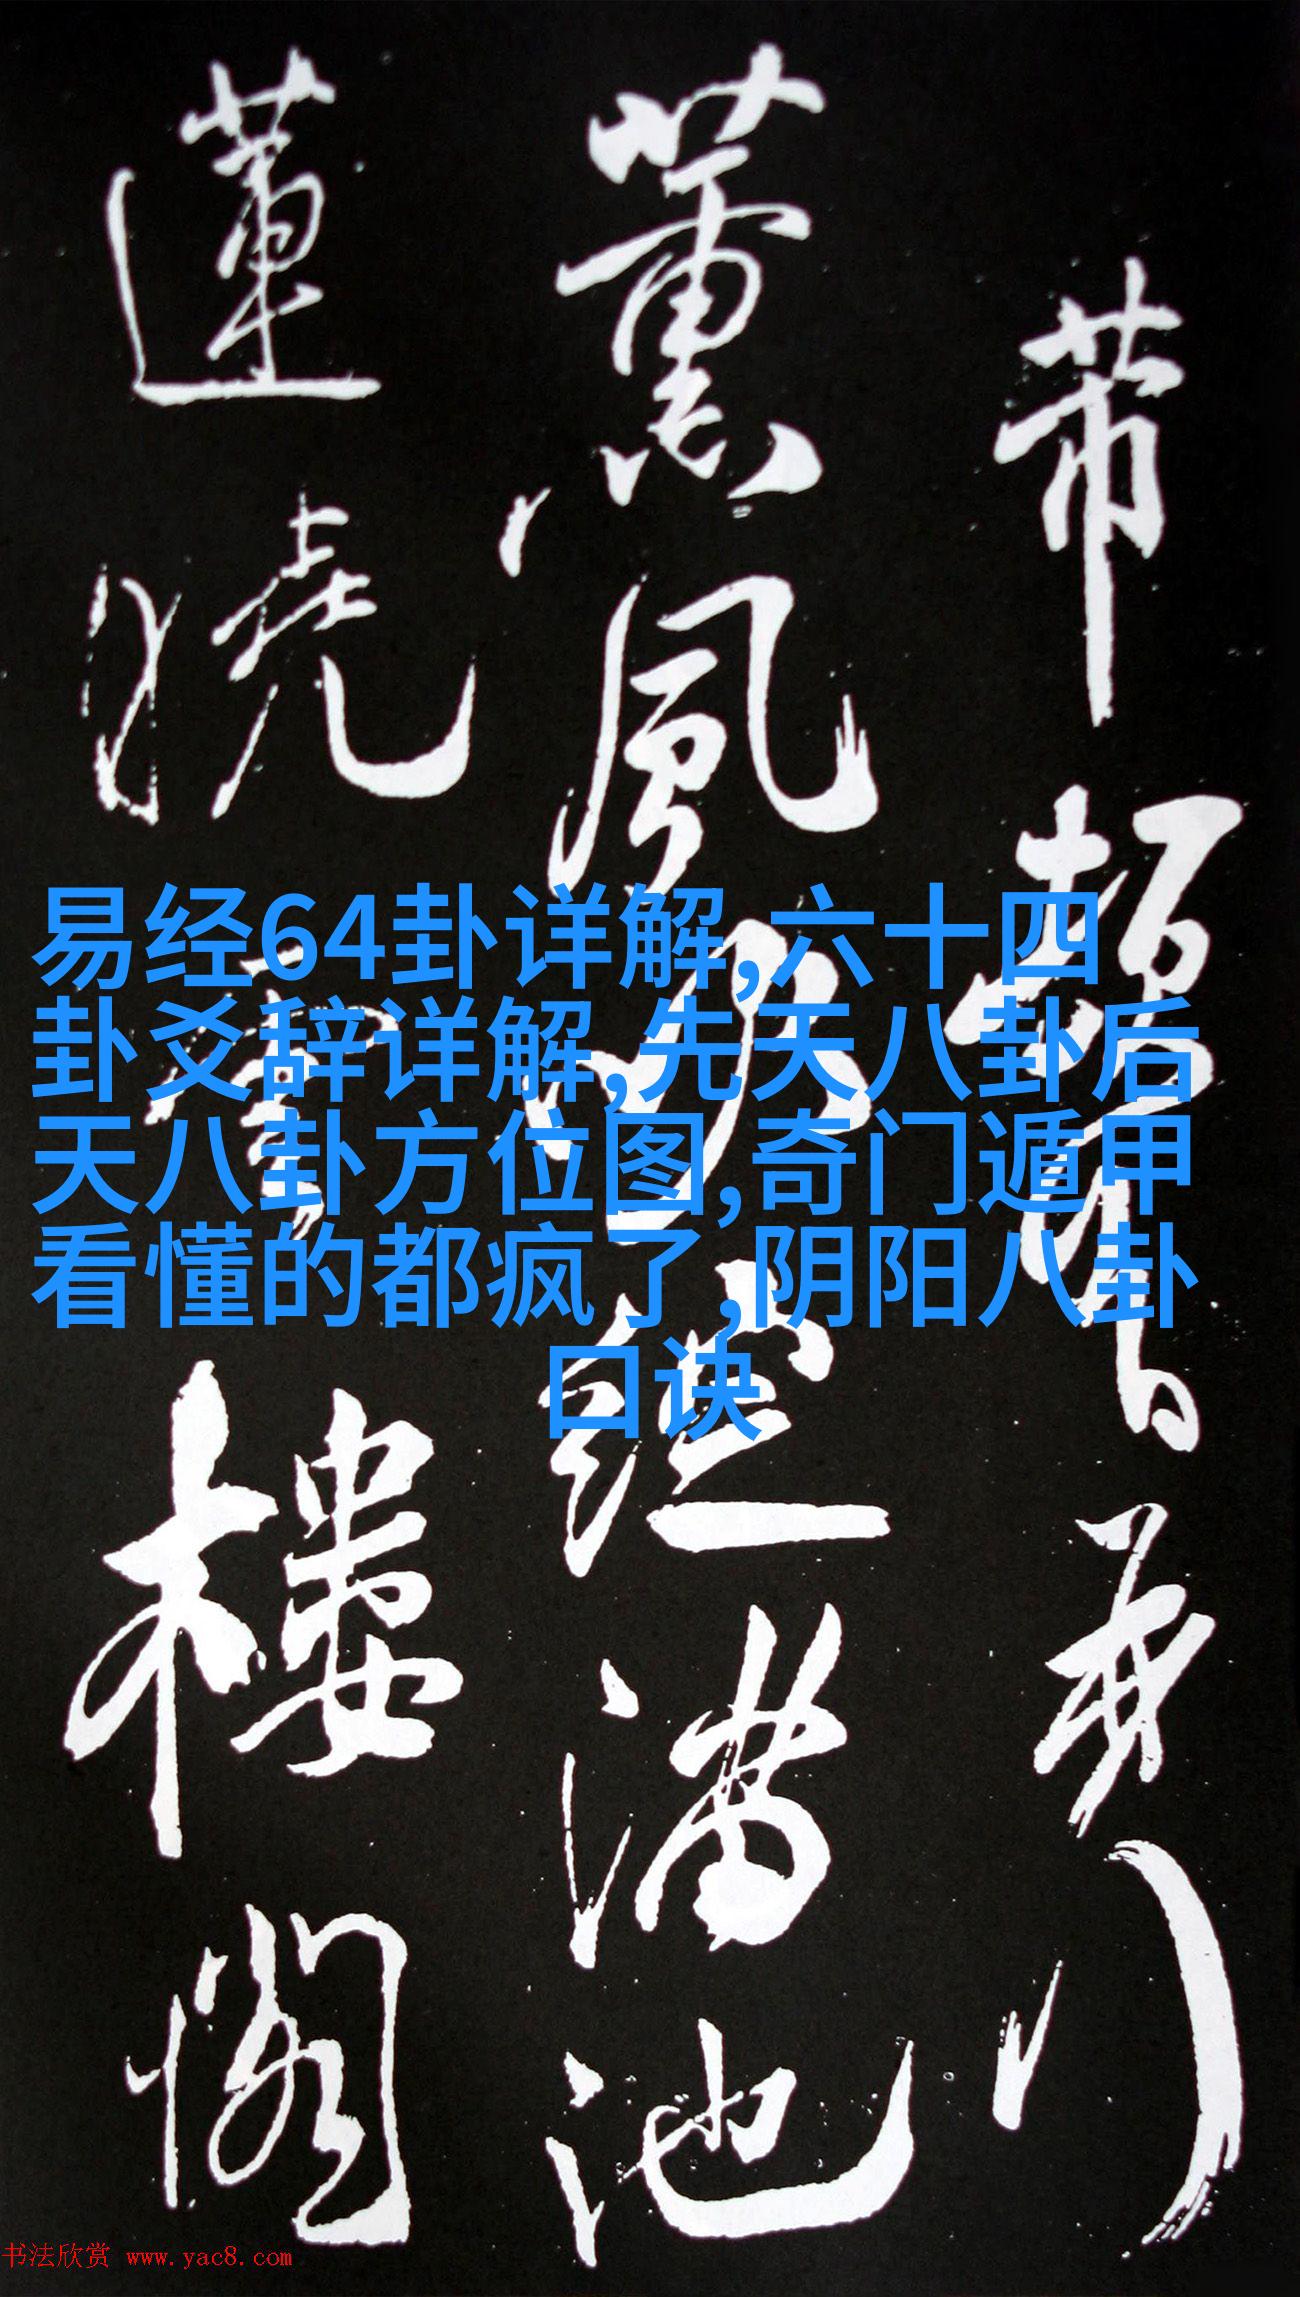 易经64卦详解,六十四
卦爻辞详解,先天八卦后
天八卦方位图,奇门遁甲
看懂的都疯了,阴阳八卦
口诀
芾
薰風滿池
蓮樓閣
书法欣赏 www.yac8.com